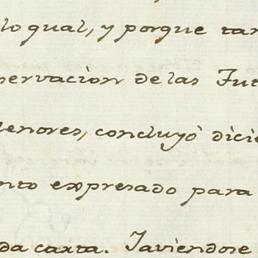 lo qual, y porque tan
servacion de las Fut
enores, concluyó dici
nto expresado para
da carta. Taviendose